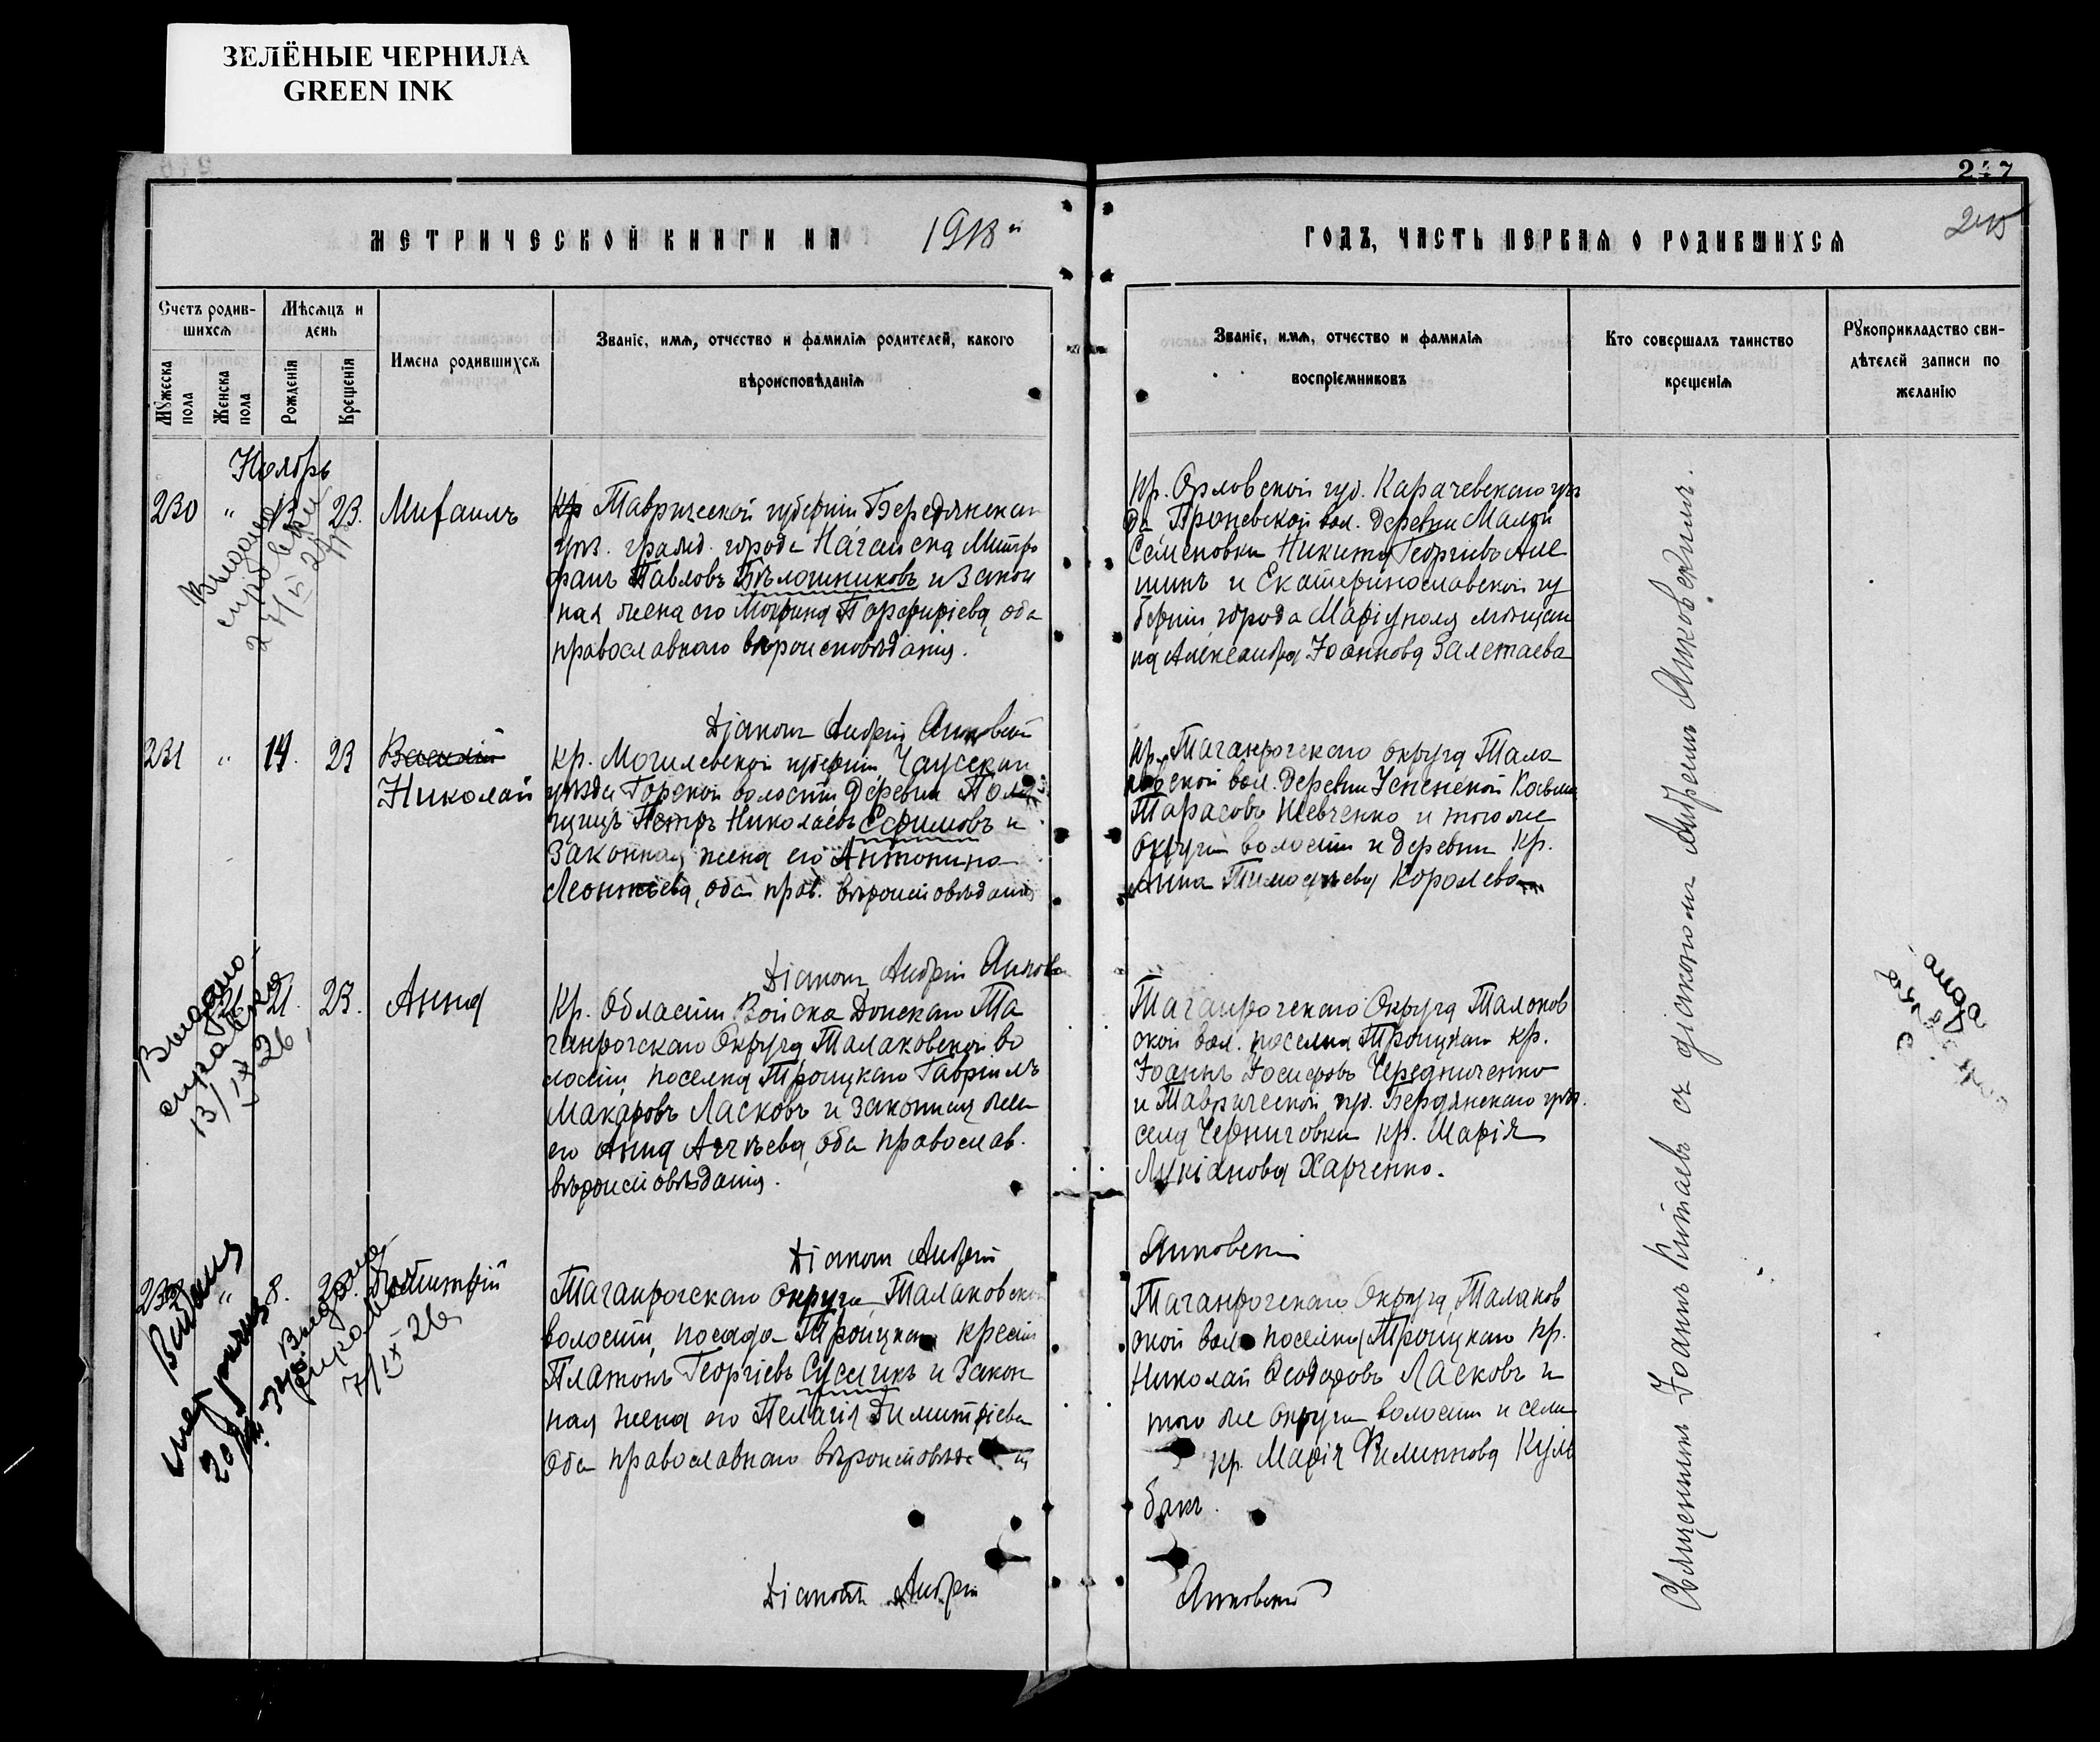 ЗЕЛЁНЫЕ ЧЕРНИЛА
GREEN INK
247
МЕТРИЧЕСКОЙ КНИГИ НА 1918 й
ГОДЪ, ЧАСТЬ ПЕРВАЯ О РОДИВШИХСЯ
Счетъ родив-
шихся
Мѣсяцъ и
день
Мужеска
пола
Женска
пола
Рожденія
Крещенія
Имена родившихся
Званіе, имя, отчество и фамилія родителей, какого
вѣроисповѣданія
Званіе, имя, отчество и фамилія
воспріемниковъ
Кто совершалъ таинство
крещенія
Рукоприкладство сви-
дѣтелей записи по
желанію
Ноябрь
230 " 13 23. Михаилъ
Кр Таврической губерніи Бердянскаго
уѣз. гражд. города Нагайска Митро
фанъ Павловъ Бѣлошниковъ и закон
ная жена его Порфиріева, оба
православнаго вѣроисповѣданія.
Діаконъ Андрей Янковскій
Кр. Орловской губ. Карачевскаго уѣз
вол. деревни Малой
Семеновки Никита Георгіевъ Але
шинъ и Екатеринославской гу
берніи города Маріуполя мѣщан
ка Александра Іоаннова Залетаева
Выдано
справки
27/IX 26
231 " 14. 23 Василій
Николай
кр. Могилевской губерніи Чаусскаго
уѣзда Горской волости деревни
Петръ Николаевъ Ефимовъ и
законная жена его Антонина
Леонтьева, оба прав. вѣроисповѣданія
Діаконъ Андрей Янковс
кр. Таганрогскаго округа Тала
ковской вол. деревни Успенской Косьма
Тарасовъ Шевченко и того же
округа волости и деревни кр.
Анна Тимофѣева Королева
Выдано
справка
13/IX 26
21. 23. Анна
Кр. Области Войска Донскаго Та
ганрогскаго Округа Талаковской во
лости поселка Троицкаго Гавріилъ
Макаровъ Ласковъ и законная жен
его Анна, оба православ.
вѣроисповѣданія.
Діаконъ Андрей
Янковскій
Таганрогскаго Округа Талаков
ской вол. поселка Троицкаго кр.
Іоаннъ Іосифовъ Чередниченко
и Таврической губ. Бердянскаго уѣз.
села Черниговки кр. Марія
Лукіанова Харченко.
" 8. Димитрій
Выдано
справка
7/IX 26
Таганрогскаго округа Талаковской
волости, посада Троицкаго крест
Платонъ Георгіевъ Суслинъ и закон
ная жена его Пелагія Димитріева
оба православнаго вѣроисповѣда
Діаконъ Андрей
Янковскій
Таганрогскаго Округа Талаков
ской вол поселка Троицкаго кр.
Николай Ѳеодоровъ Ласковъ и
того же округа волости и села
кр. Марія Филиппова Куль
бакъ.
Священникъ Іоаннъ Китаевъ съ діакономъ Андреемъ Янковскимъ.